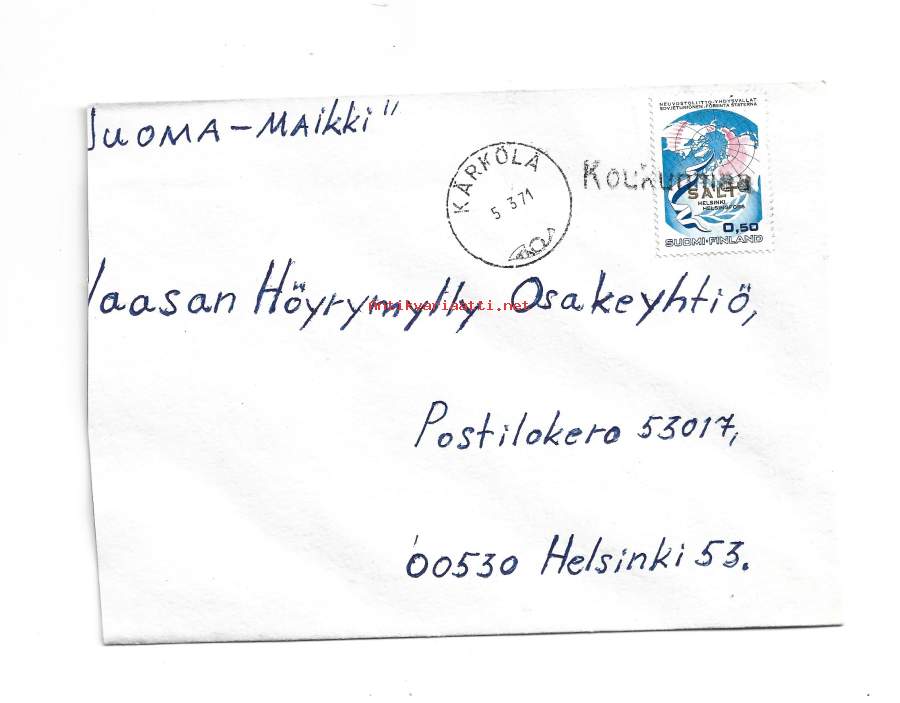 SUOMA - MAikki"
KÄRKÖLÄ
5.3.71
NEUVOSTOLIITTO-YHDYSVALLAT
SOVJETUNIONEN-FÖRENTA STATERNA
SALT
HELSINKI
HELSINGFORS
0,50
SUOMI-FINLAND
Vaasan Höyrymylly Osakeyhtiö,
Antikvariaatti.net
Postilokero 53017,
00530 Helsinki 53.